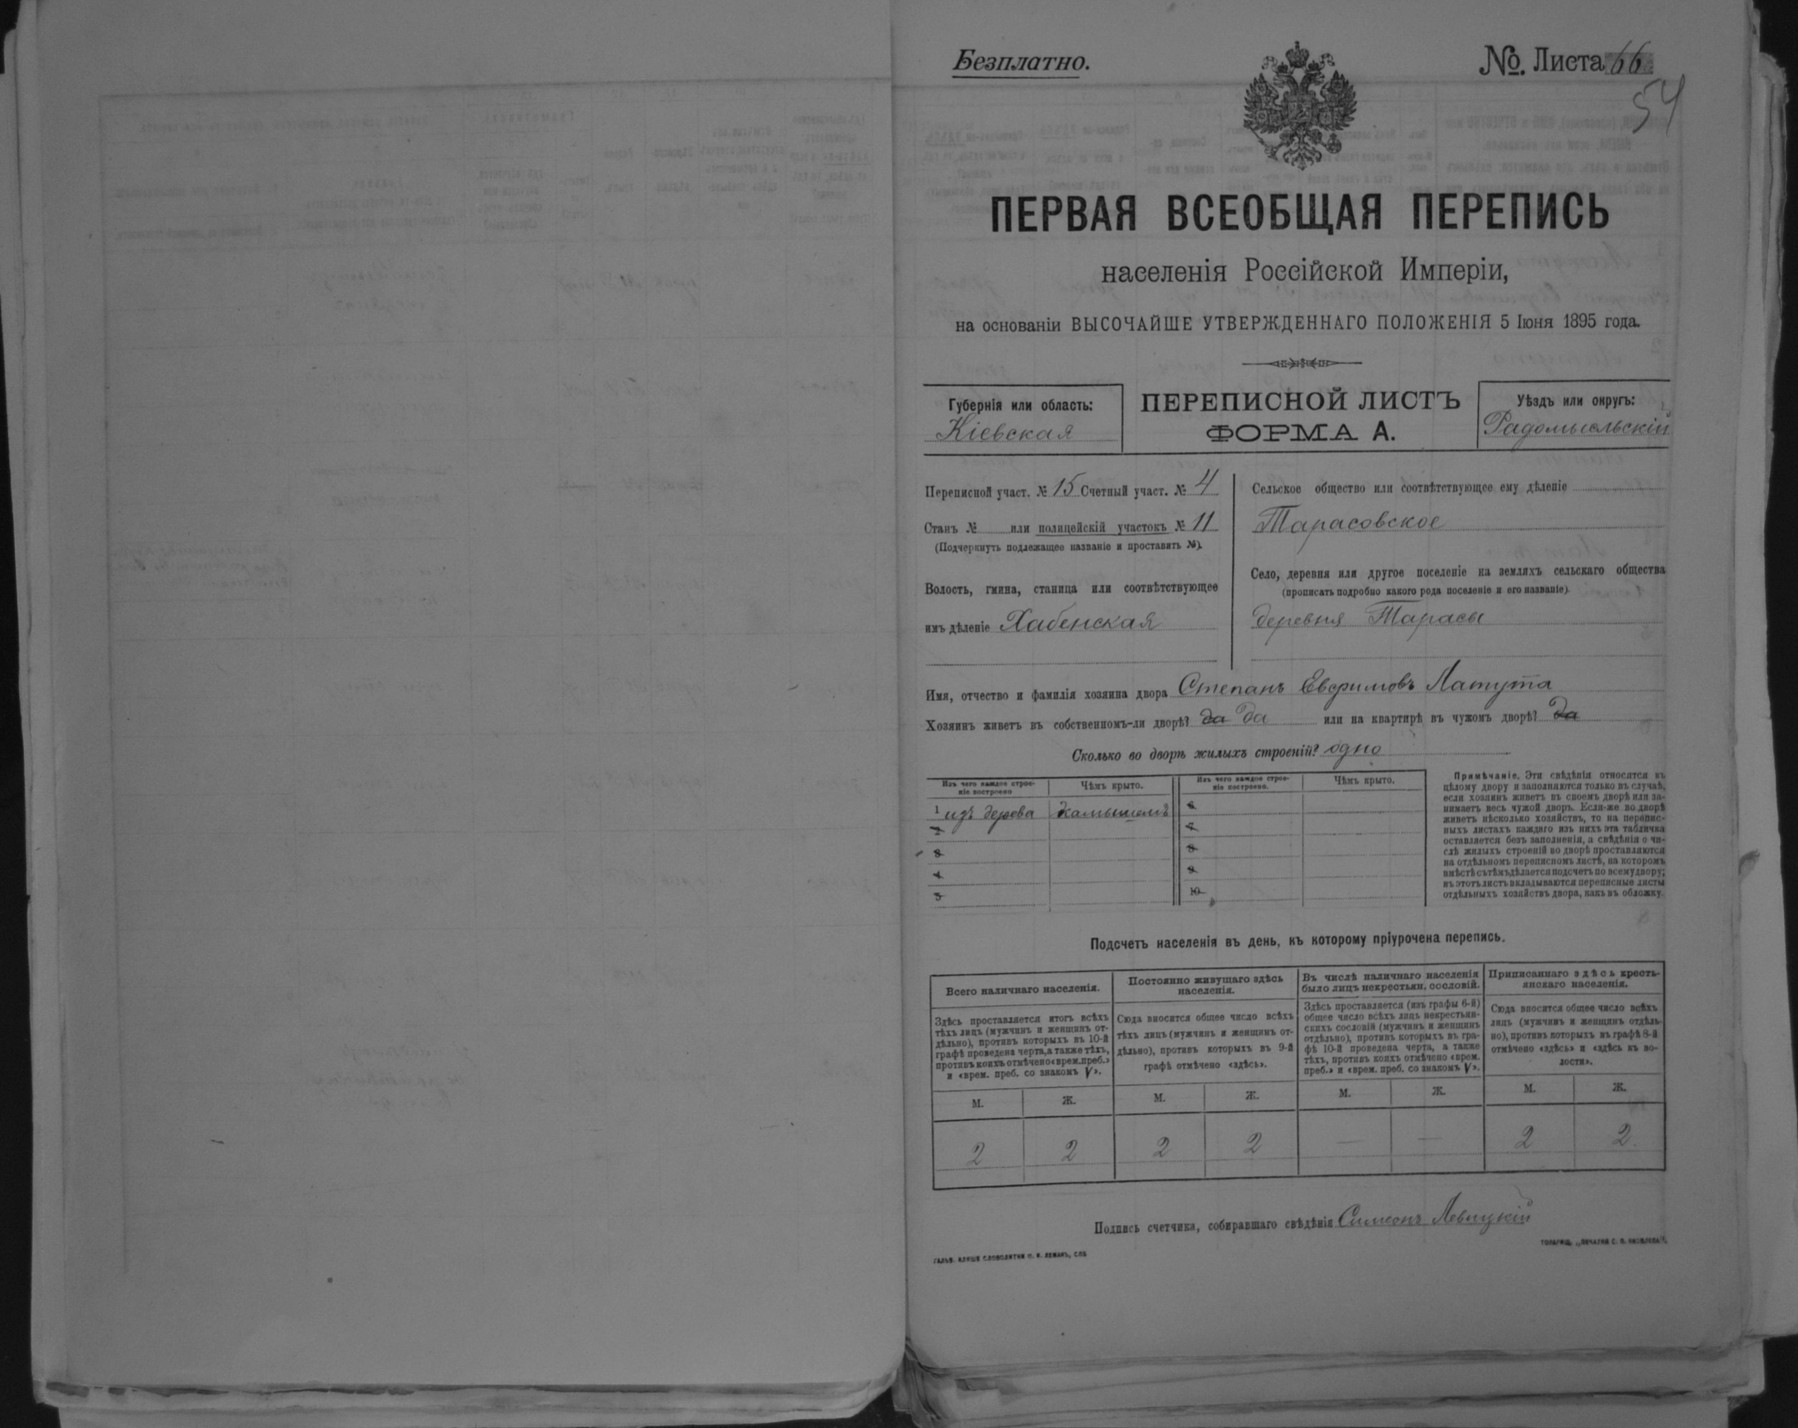 Безплатно.
№. Листа 66
54
ПЕРВАЯ ВСЕОБЩАЯ ПЕРЕПИСЬ
населенія Россійской Имперіи,
на основаніи ВЫСОЧАЙШЕ УТВЕРЖДЕННАГО ПОЛОЖЕНІЯ 5 Іюня 1895 года.
Губернія или область:
Кіевская
ПЕРЕПИСНОЙ ЛИСТЪ
ФОРМА А.
Уѣздъ или округъ:
Радомысльскій
Переписной участ. № 15 Счетный участ. № 4
Станъ № или полицейскій участокъ № 11
(Подчеркнуть подлежащее названіе и проставить №).
Волость, гмина, станица или соотвѣтствующее
имъ дѣленіе Хабенская
Сельское общество или соотвѣтствующее ему дѣленіе
Тарасовское
Село, деревня или другое поселеніе на земляхъ сельскаго общества
(прописать подробно какого рода поселеніе и его названіе).
деревня Тарасы
Имя, отчество и фамилія хозяина двора Степанъ Евфимовъ Латута
Хозяинъ живетъ въ собственномъ-ли дворѣ? да да или на квартирѣ въ чужомъ дворѣ? да
Сколько во дворѣ жилыхъ строеній? одно
Изъ чего каждое строе-
ніе построено
Чѣмъ крыто.
Изъ чего каждое строе-
ніе построено.
Чѣмъ крыто.
1 изъ дерева камышемъ
2
3
4
5
6
7
8
9
10
Примѣчаніе. Эти свѣдѣнія относятся къ
цѣлому двору и заполняются только въ случаѣ,
если хозяинъ живетъ въ своемъ дворѣ или за-
нимаетъ весь чужой дворъ. Если-же во дворѣ
живетъ нѣсколько хозяйствъ, то на перепис-
ныхъ листахъ каждаго изъ нихъ эта табличка
оставляется безъ заполненія, а свѣдѣнія о чи-
слѣ жилыхъ строеній во дворѣ проставляются
на отдѣльномъ переписномъ листѣ, на которомъ
вмѣстѣ съ тѣмъ дѣлается подсчетъ по всему двору;
въ этотъ листъ вкладываются переписные листы
отдѣльныхъ хозяйствъ двора, какъ въ обложку.
Подсчетъ населенія въ день, къ которому пріурочена перепись.
Всего наличнаго населенія.
Здѣсь проставляется итогъ всѣхъ
тѣхъ лицъ (мужчинъ и женщинъ от-
дѣльно), противъ которыхъ въ 10-й
графѣ проведена черта, а также тѣхъ,
противъ коихъ отмѣчено «врем. преб.»
и «врем. преб. со знакомъ V».
Постоянно живущаго здѣсь
населенія.
Сюда вносится общее число всѣхъ
тѣхъ лицъ (мужчинъ и женщинъ от-
дѣльно), противъ которыхъ въ 9-й
графѣ отмѣчено «здѣсь».
Въ числѣ наличнаго населенія
было лицъ некрестьян. сословій.
Здѣсь проставляется (изъ графы 6-й)
общее число всѣхъ лицъ некрестьян-
скихъ сословій (мужчинъ и женщинъ
отдѣльно), противъ которыхъ въ гра-
фѣ 10-й проведена черта, а также
тѣхъ, противъ коихъ отмѣчено «врем.
преб.» и «врем. преб. со знакомъ V».
Приписаннаго здѣсь кресть-
янскаго населенія.
Сюда вносится общее число всѣхъ
лицъ (мужчинъ и женщинъ отдѣль-
но), противъ которыхъ въ графѣ 8-й
отмѣчено «здѣсь» и «здѣсь къ во-
лости».
М. Ж. М. Ж. М. Ж. М. Ж.
2 2 2 2 — — 2 2.
Подпись счетчика, собиравшаго свѣдѣнія Симеонъ Левицкій
ГАЛЬВ. КЛИШЕ СЛОВОЛИТНИ О. И. ЛЕМАНЪ, СПБ
ТОВАРИЩ. „ПЕЧАТНЯ С. П. ЯКОВЛЕВА".